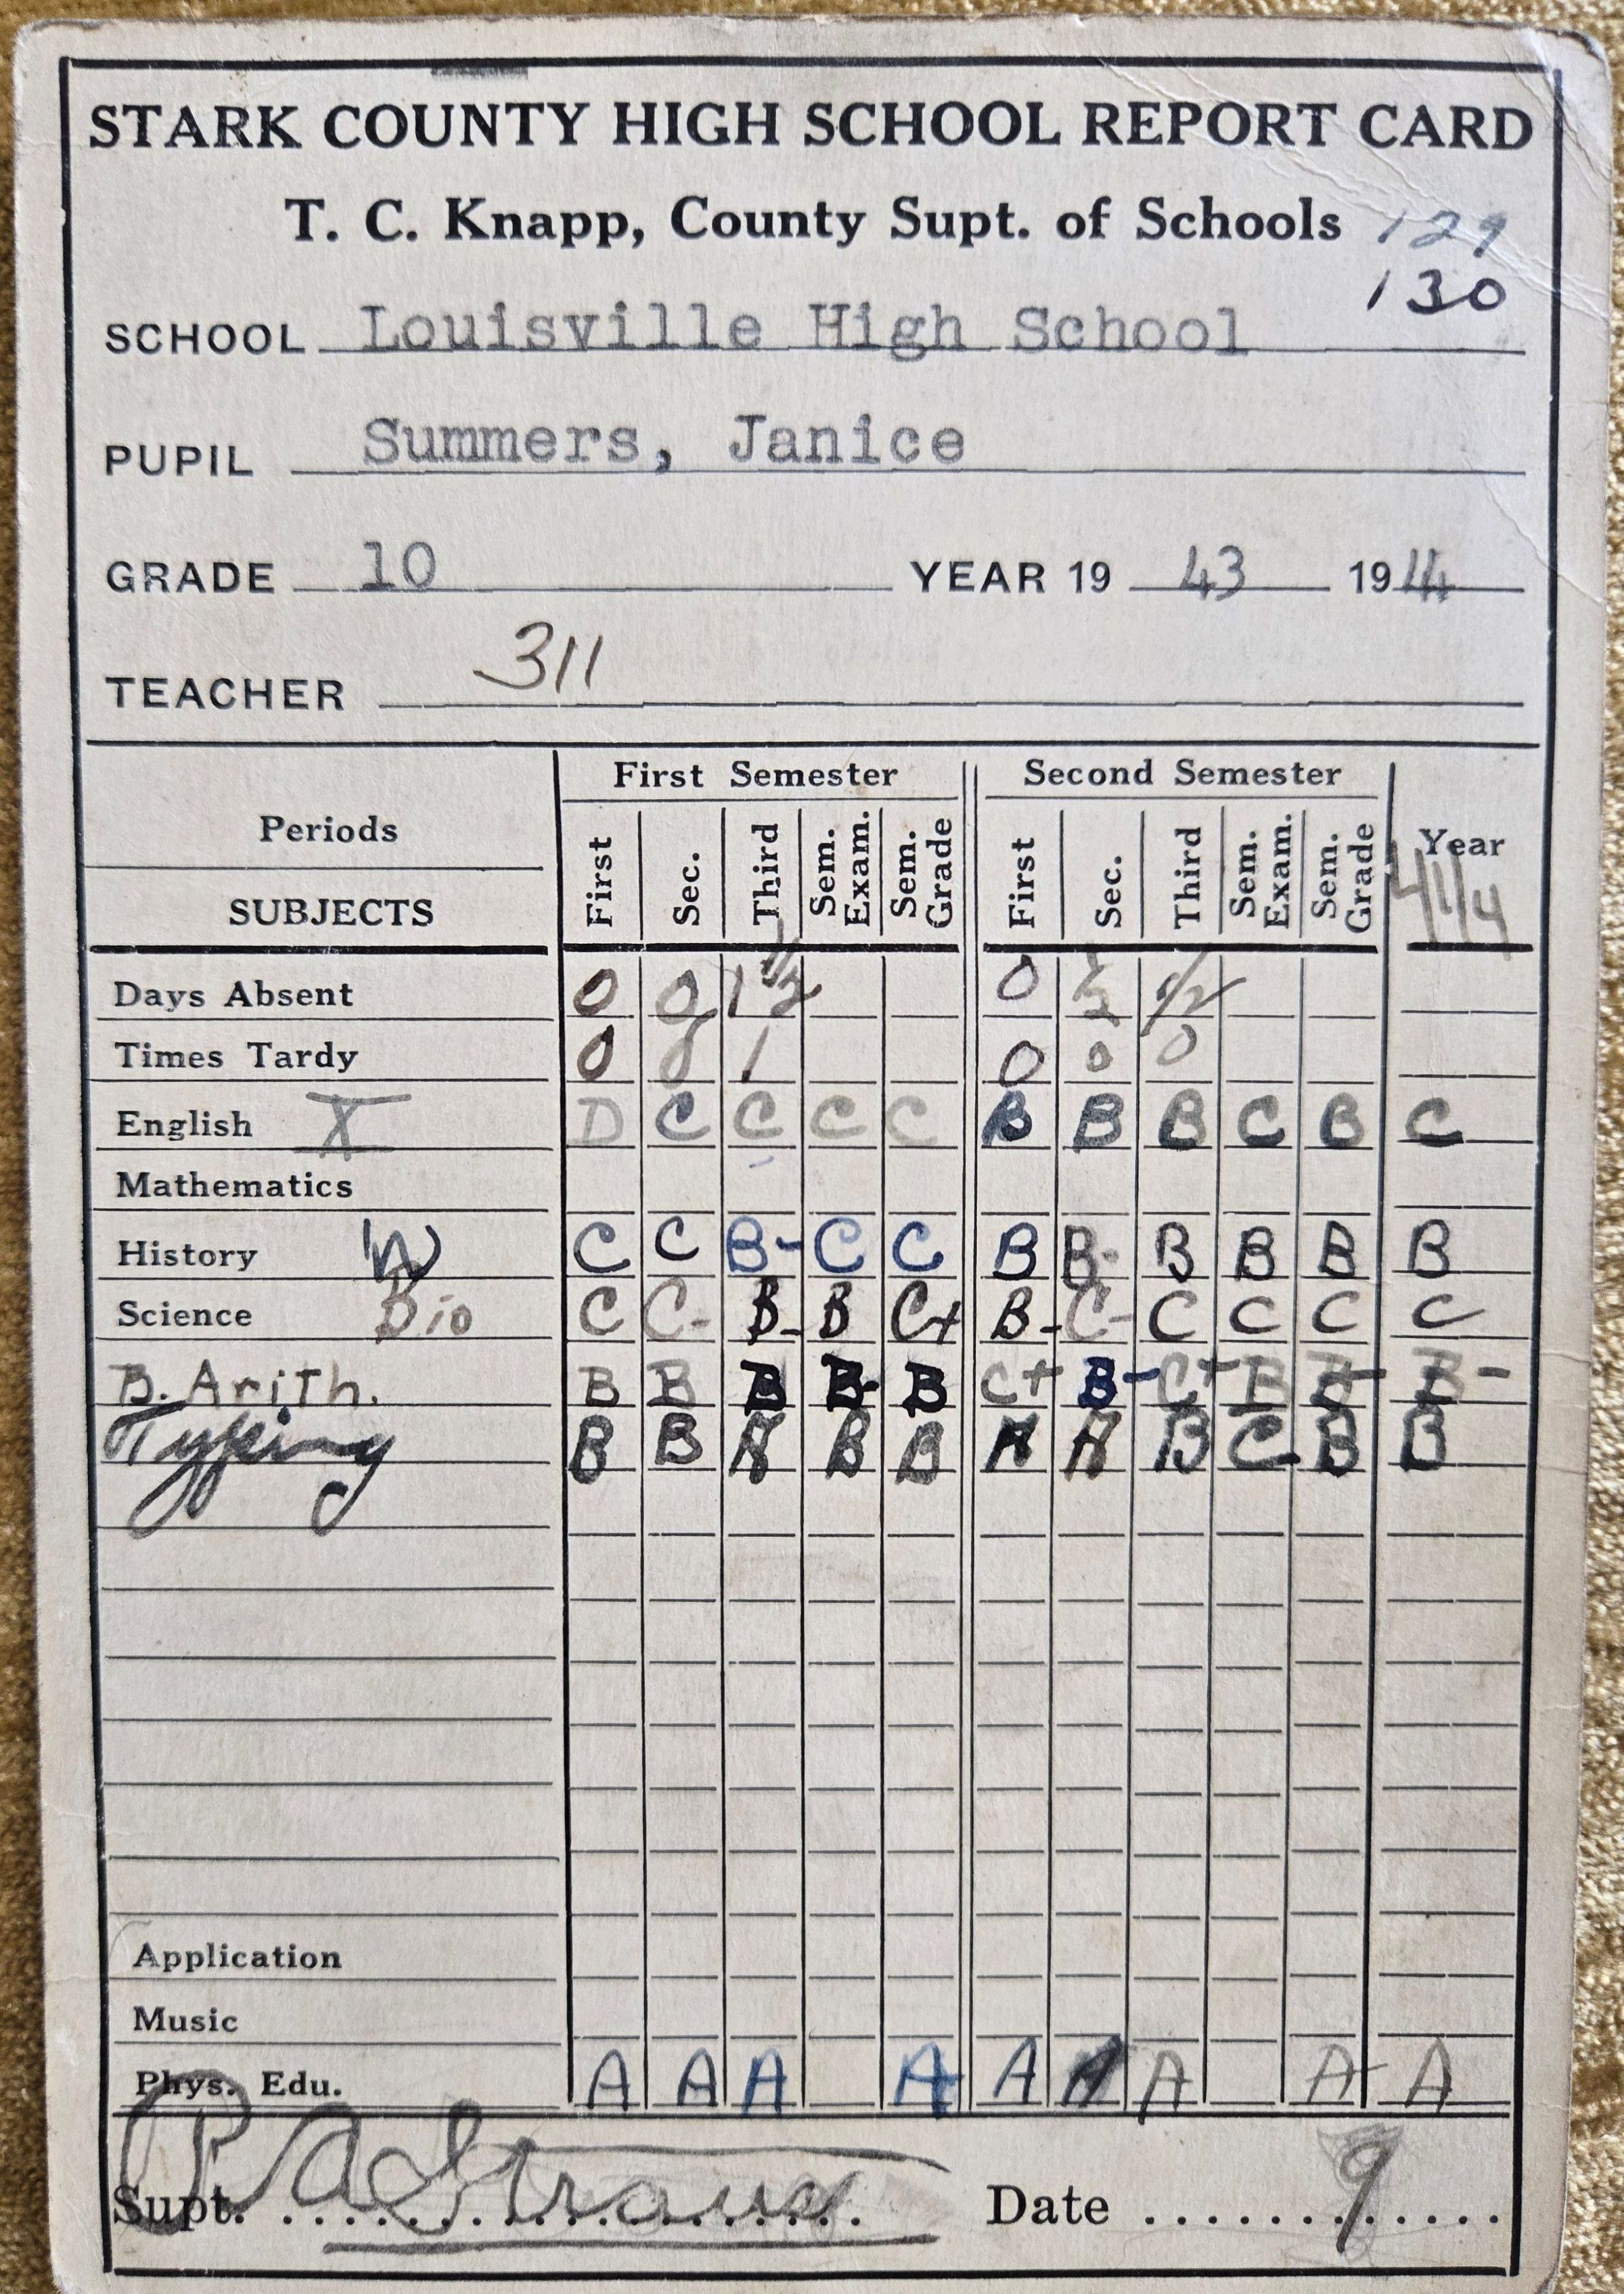 STARK COUNTY HIGH SCHOOL REPORT CARD
T. C. Knapp, County Supt. of Schools 129
130
SCHOOL Louisville High School
PUPIL Summers, Janice
GRADE 10 YEAR 19 43 19 44
TEACHER 311
First Semester Second Semester
Periods First Sec. Third Sem. Exam. Sem. Grade First Sec. Third Sem. Exam. Sem. Grade Year
SUBJECTS
Days Absent 0 0 1 1/2 0 1/2 1/2
Times Tardy 0 0 1 0 0 0
English X D C C C C B B B C B C
Mathematics
History W C C B- C C B B- B B B B
Science Bio C C- B- B C+ B- C- C C C C
B. Arith. B B B B- B C+ B- C+ B B- B-
Typing B B A B B A A B C- B B
Application
Music
Phys. Edu. A A A A A A A A A
Supt. Date 9